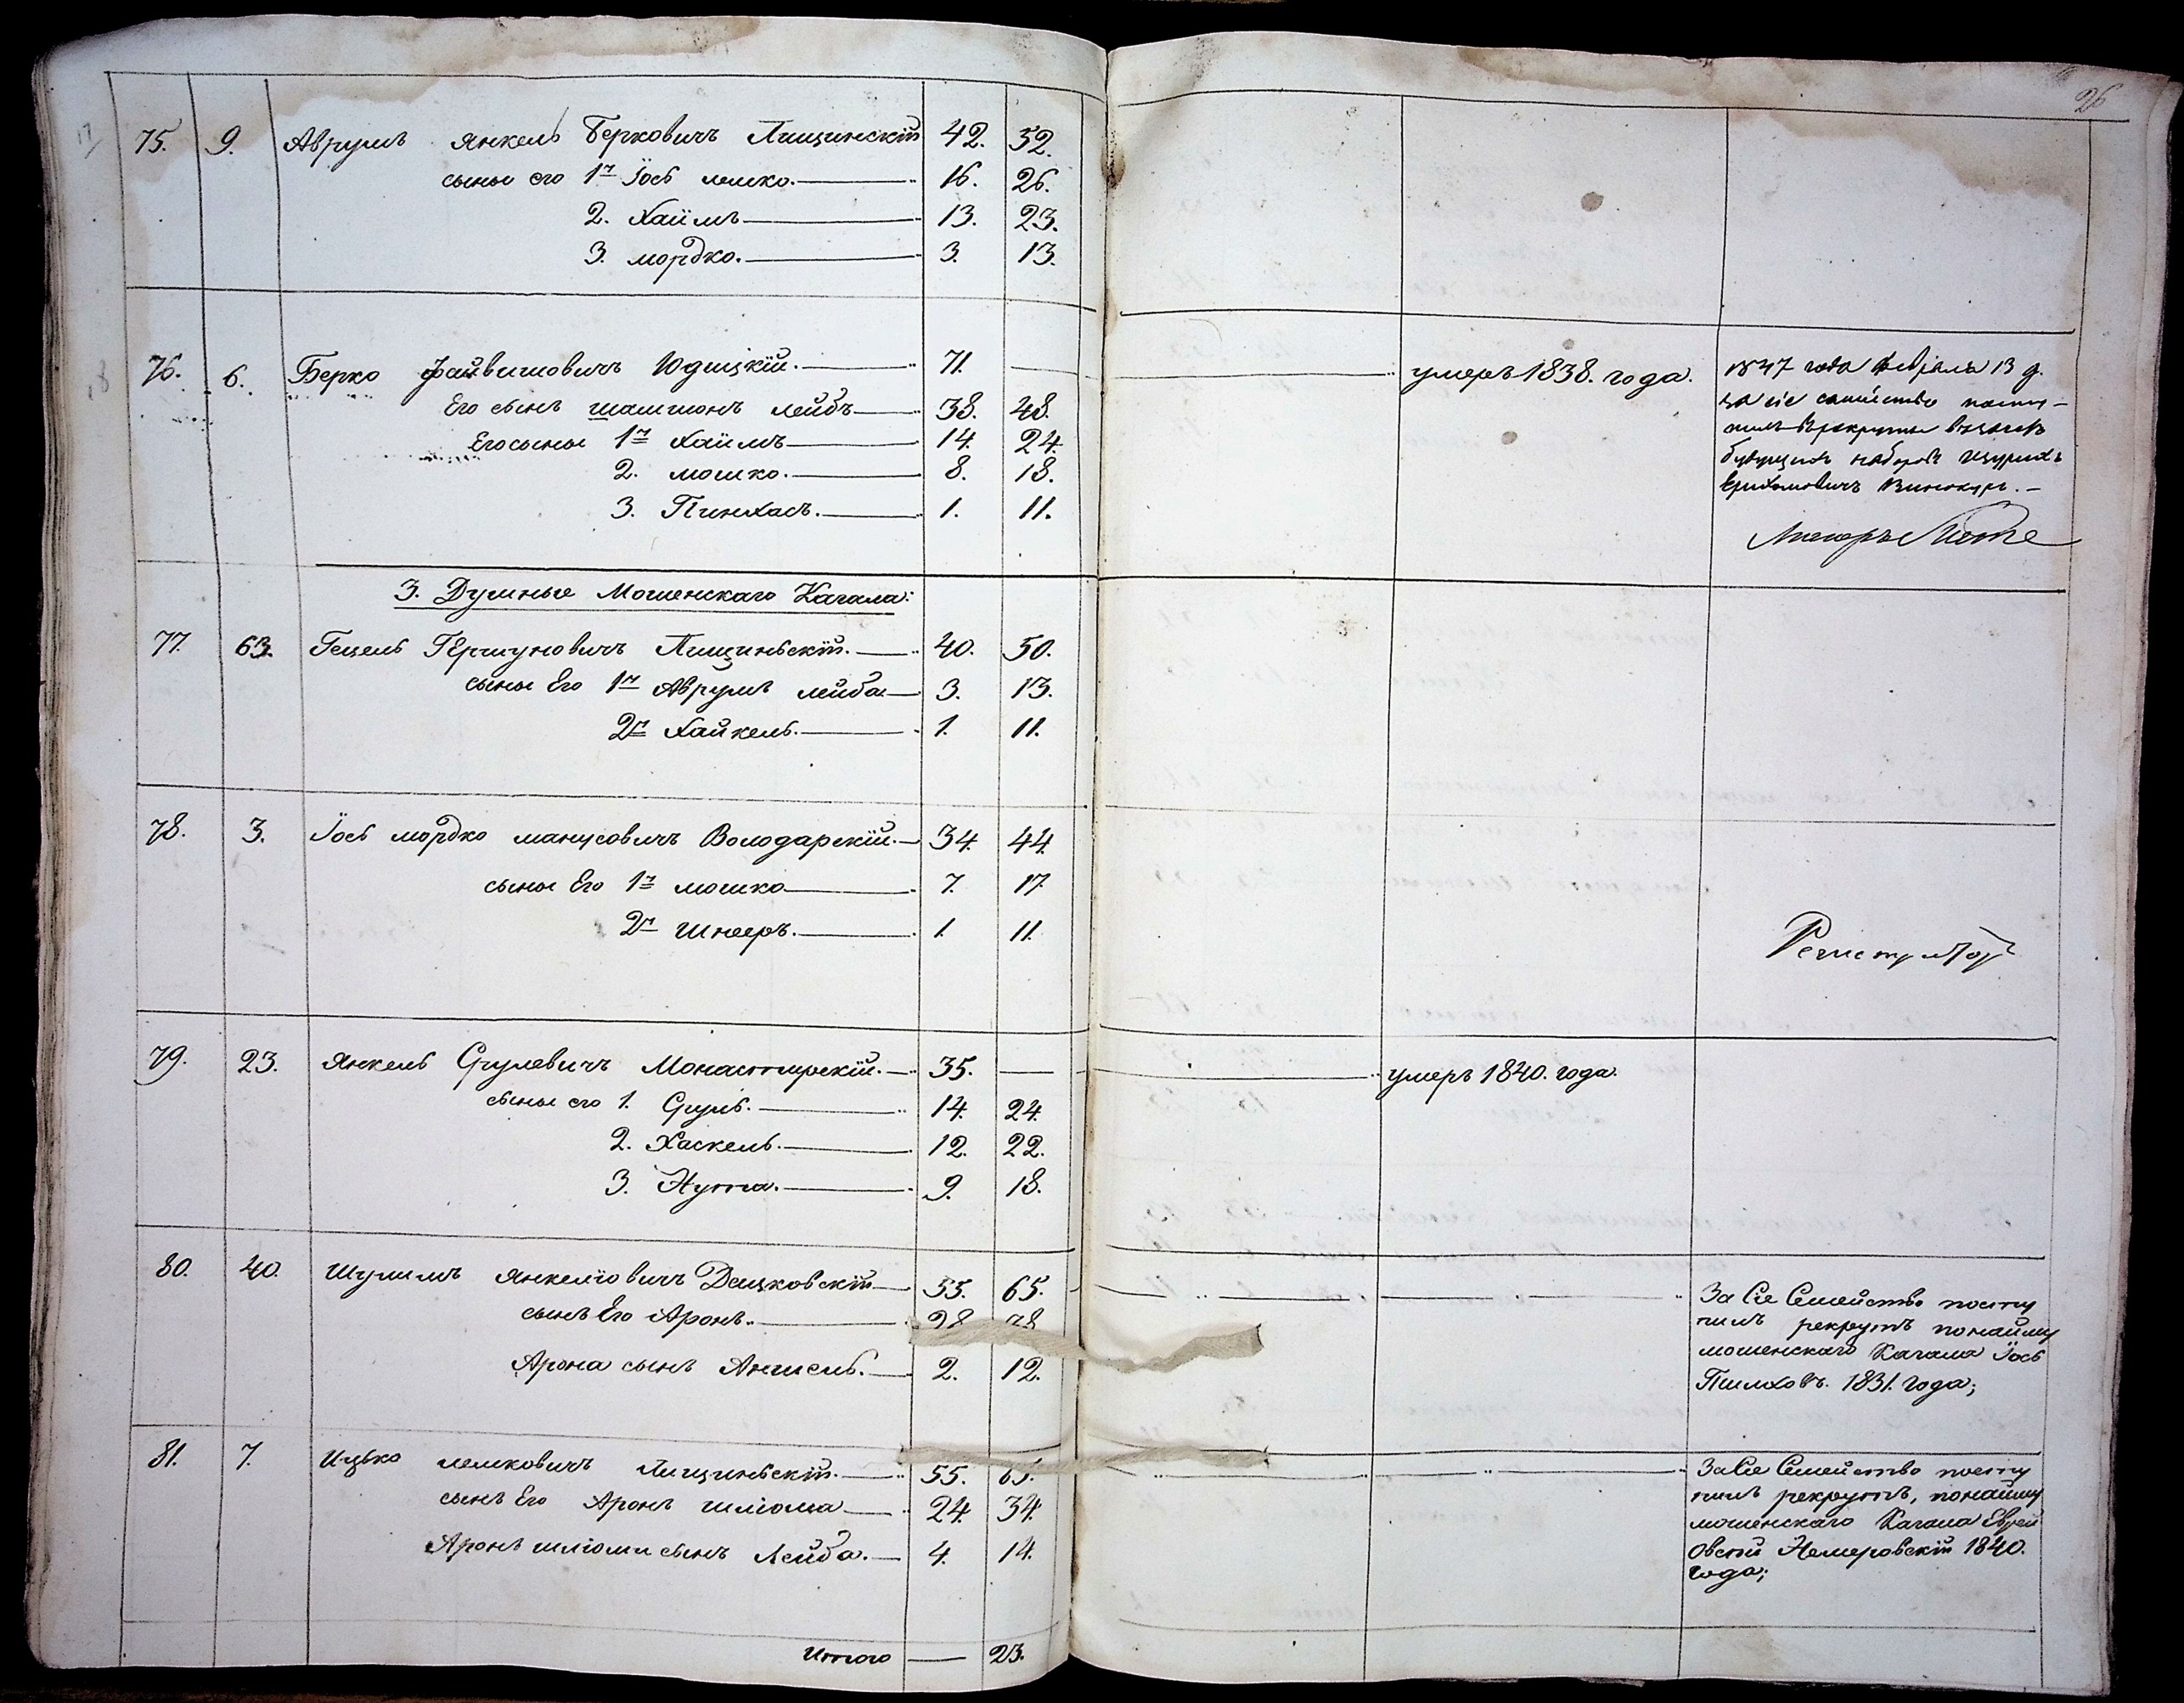 26
75. 9. Аврумъ Янкель Берковичъ Пищинскій 42. 52.
сыны его 1й Іось лешко. 16. 26.
2. Хаимъ 13. 23.
3. мордко. 3. 13.
76. 6. Берко Файвишовичъ Юдицкій. 71. — умеръ 1838. года.
Его сынъ шашіонъ лейбъ 38. 48.
Его сыны 1й Хаимъ 14. 24.
2. мошко. 8. 18.
3. Пинхасъ. 1. 11.
1847 года февраля 13 д.
за сіе семейство посту-
пилъ въ рекруты въ зачетъ
будущихъ наборовъ
Винокуръ. —
3. Душные Мошенскаго Кагала:
77. 63. Гецель Гершуновичъ Пищинскій. 40. 50.
сыны Его 1й Аврумъ лейба 3. 13.
2й Хайкель. 1. 11.
78. 3. Іось мордко манусовичъ Володарскій. 34. 44.
сыны Его 1й мошко 7. 17.
2й Шнееръ. 1. 11.
79. 23. Янкель Срулевичъ Монастирскій. 35. — умеръ 1840. года.
сыны его 1. Сруль. 14. 24.
2. Хаскель. 12. 22.
3. Нута. 9. 18.
80. 40. Шулимъ Янкеліовичъ Дашковскій 55. 65.
сынъ Его Аронъ. 28 38
Арона сынъ Аншель. 2. 12.
За Сіе Семейство посту
пилъ рекрутъ понайму
мошенскаго Кагала Іось
1831. года;
81. 7. Ицько лешковичъ Пищинскій. 55. 65.
сынъ Его Аронъ шліома 24. 34.
Аронъ шліоми сынъ Лейба. 4. 14.
За Сіе Семейство посту
пилъ рекрутъ, понайму
мошенскаго Кагала Еврей
Овсей Немеровскій 1840.
года;
Итого — 23.